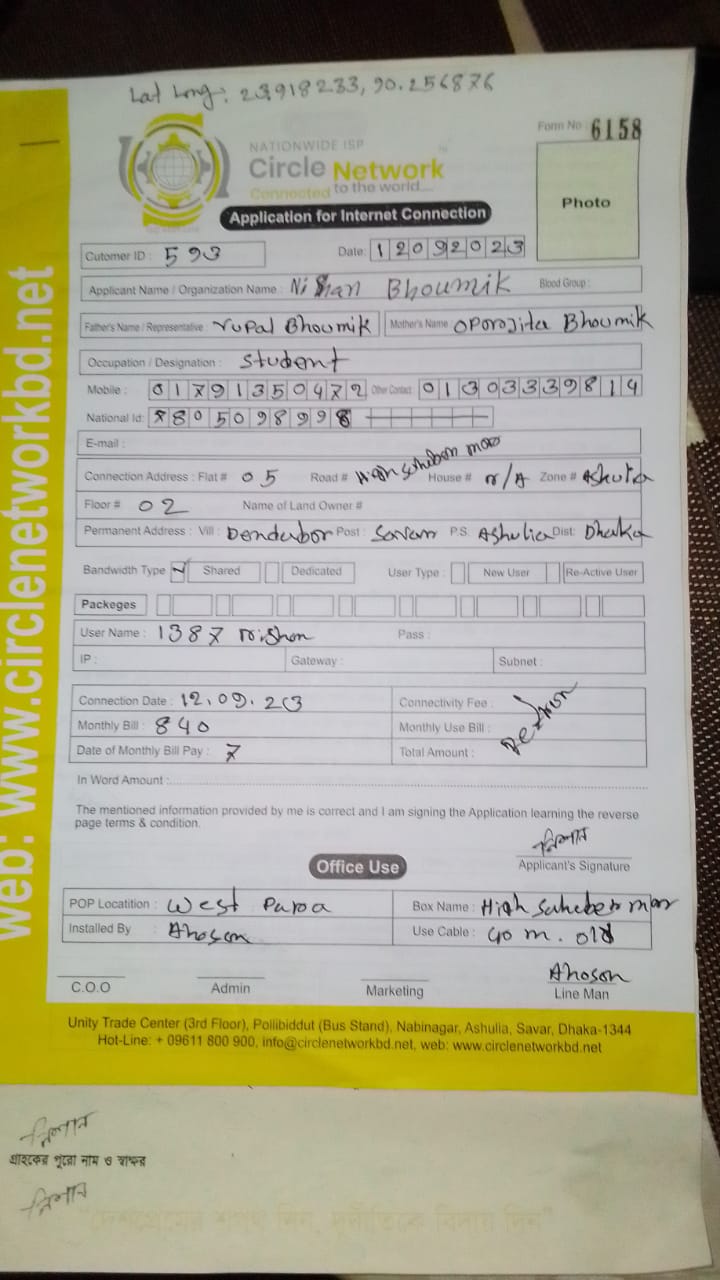 Lat Long: 23.918233, 90.256876
Form No : 6158
NATIONWIDE ISP
Circle Network
Connected to the world....
Photo
Application for Internet Connection
Cutomer ID : 593 Date: 12092023
Applicant Name / Organization Name : Nishan Bhoumik Blood Group :
Father's Name / Representative : rupal Bhoumik Mother's Name oporojita Bhoumik
Occupation / Designation : Student
Mobile : 01791350472 Other Contact: 01303339814
National Id: 7805098998
E-mail :
Connection Address : Flat # 05 Road # House # n/A Zone # Ashulia
Floor # 02 Name of Land Owner #
Permanent Address : Vill : Dendabor Post : Savar P.S. Ashulia Dist: Dhaka
Bandwidth Type Shared Dedicated User Type : New User Re-Active User
Packeges
User Name : 1387 nishan Pass :
IP : Gateway : Subnet :
Connection Date : 12.09.23 Connectivity Fee :
Monthly Bill : 840 Monthly Use Bill :
Date of Monthly Bill Pay : 7 Total Amount :
In Word Amount :
The mentioned information provided by me is correct and I am signing the Application learning the reverse
page terms & condition.
নিশান
Applicant's Signature
Office Use
POP Locatition : West Para Box Name :
Installed By : Ahosan Use Cable : 40 m. old
Ahoson
C.O.O Admin Marketing Line Man
Unity Trade Center (3rd Floor), Pollibiddut (Bus Stand), Nabinagar, Ashulia, Savar, Dhaka-1344
Hot-Line: + 09611 800 900, info@circlenetworkbd.net, web: www.circlenetworkbd.net
web: www.circlenetworkbd.net
নিশান
গ্রাহকের পুরো নাম ও স্বাক্ষর
নিশান
"দেশপ্রেমের শপথ নিন, দুর্নীতিকে বিদায় দিন"